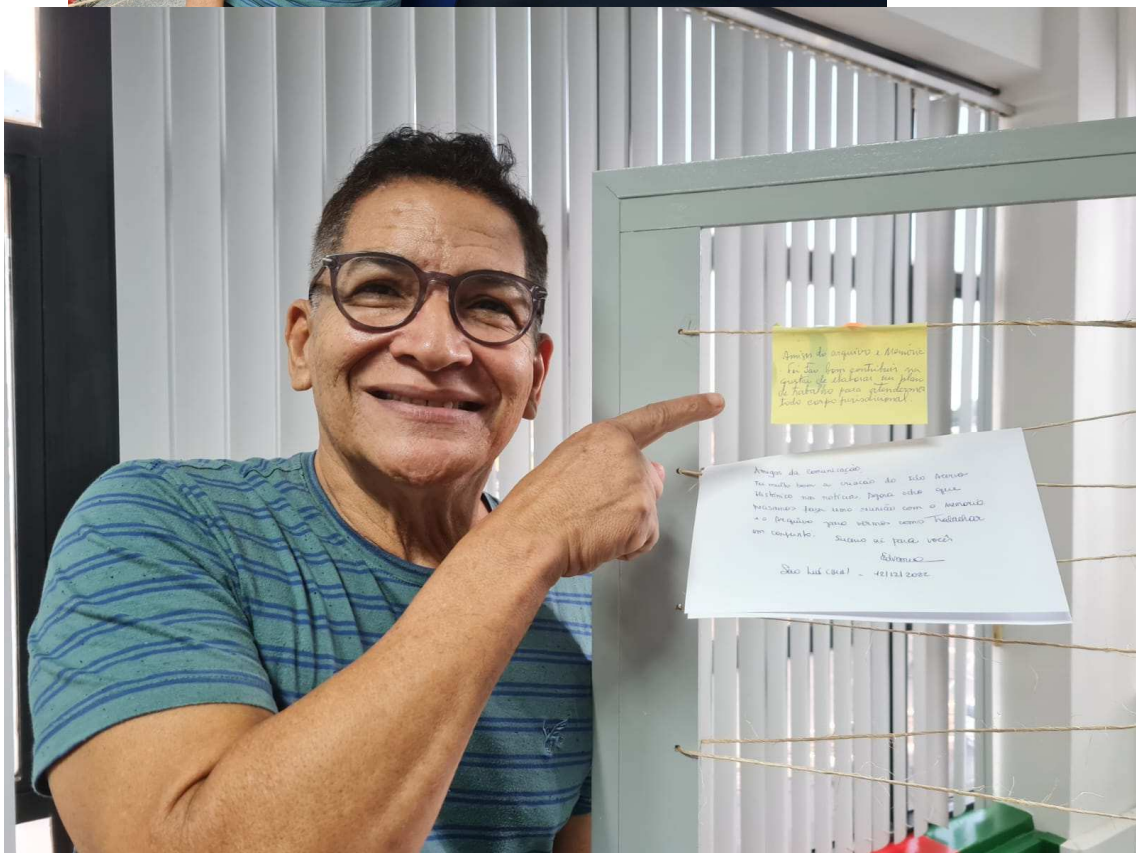 Amigos do arquivo e Memória
foi tão bom contribuir na
gestão de elaborar um plano
de trabalho para
todo corpo jurisdicional.
Amigos da comunicação
muito bom a criação do
histórico nas notícias. Agora acho que
precisamos fazer uma reunião com a memória
e o arquivo para vermos como trabalhar
em conjunto. para vocês
São Luís (MA) - 12/12/2022